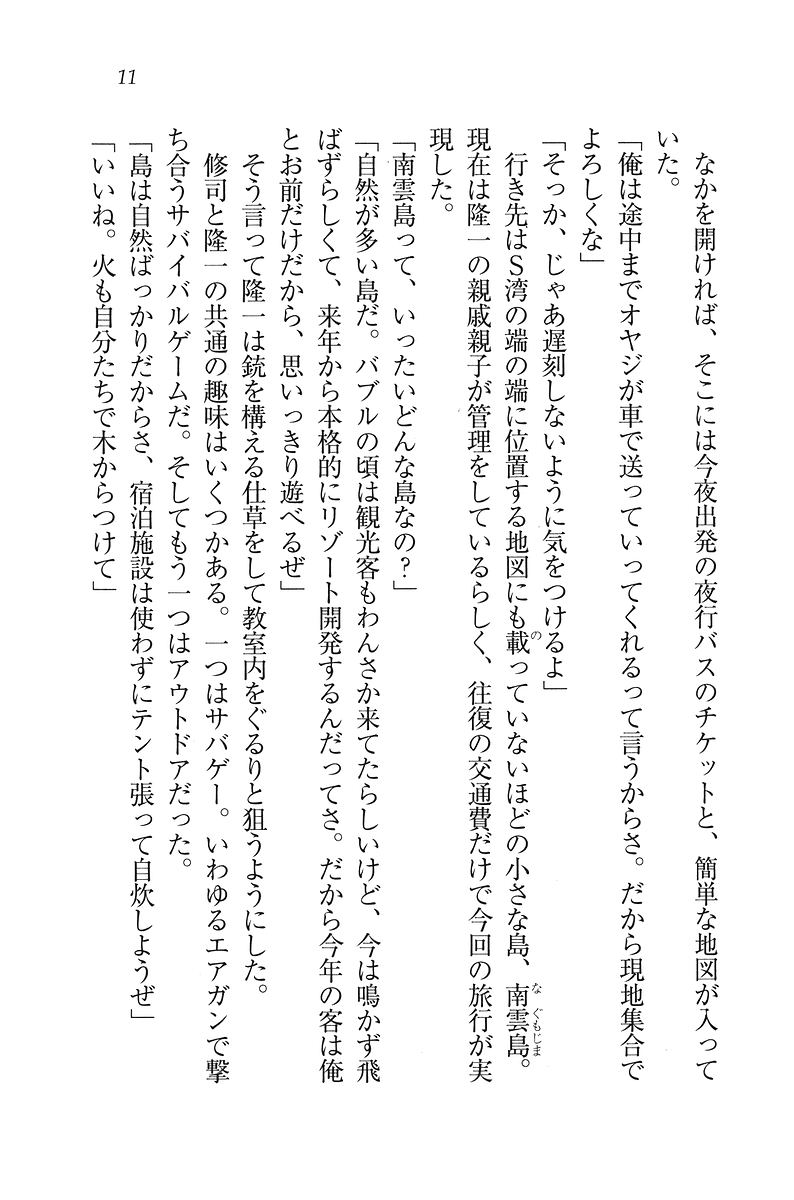 11
なかを開ければ、そこには今夜出発の夜行バスのチケットと、簡単な地図が入って
いた。
「俺は途中までオヤジが車で送っていってくれるって言うからさ。だから現地集合で
よろしくな」
「そっか、じゃあ遅刻しないように気をつけるよ」
行き先はS湾の端の端に位置する地図にも載っていないほどの小さな島、南雲島。
の
なぐもじま
現在は隆一の親戚親子が管理をしているらしく、往復の交通費だけで今回の旅行が実
現した。
「南雲島って、いったいどんな島なの?」
「自然が多い島だ。バブルの頃は観光客もわんさか来てたらしいけど、今は鳴かず飛
ばずらしくて、来年から本格的にリゾート開発するんだってさ。だから今年の客は俺
とお前だけだから、思いっきり遊べるぜ」
そう言って隆一は銃を構える仕草をして教室内をぐるりと狙うようにした。
修司と隆一の共通の趣味はいくつかある。一つはサバゲー。いわゆるエアガンで撃
ち合うサバイバルゲームだ。そしてもう一つはアウトドアだった。
「島は自然ばっかりだからさ、宿泊施設は使わずにテント張って自炊しようぜ」
「いいね。火も自分たちで木からつけて」